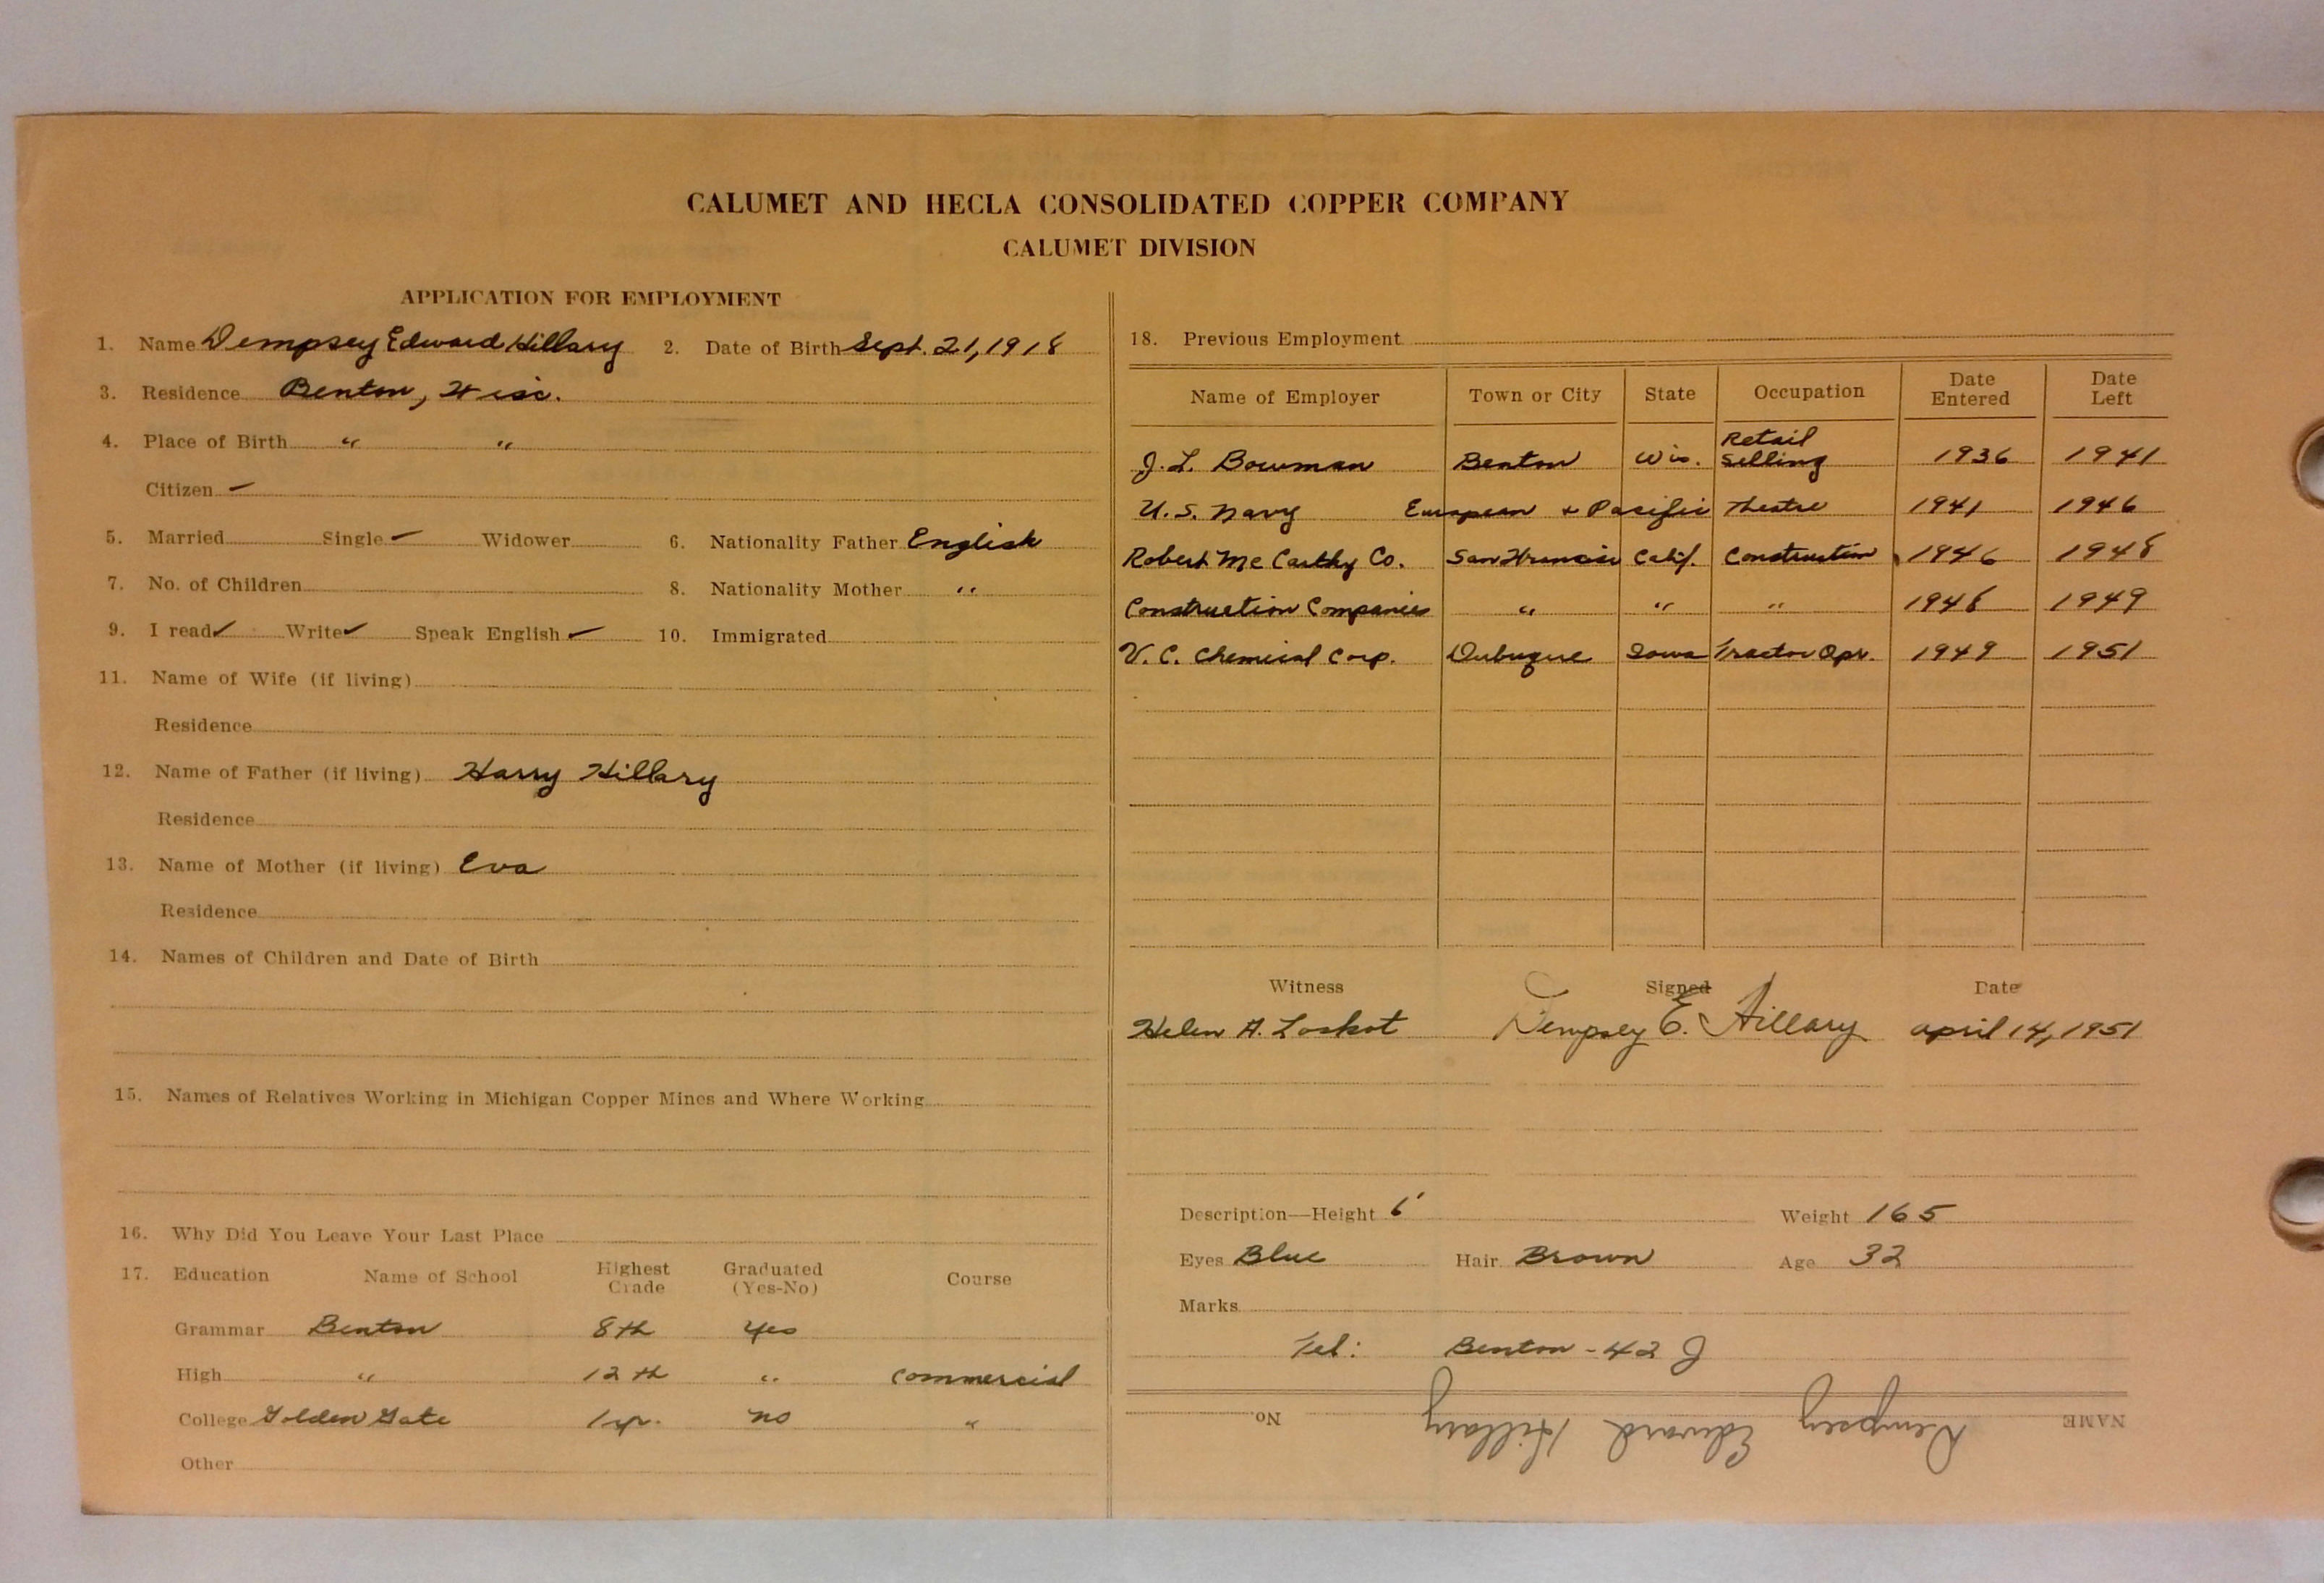 CALUMET AND HECLA CONSOLIDATED COPPER COMPANY
CALUMET DIVISION
APPLICATION FOR EMPLOYMENT
1. Name Dempsey Edward Hillary 2. Date of Birth Sept. 21, 1918
3. Residence Benton, Wisc.
4. Place of Birth " "
Citizen ✓
5. Married Single ✓ Widower 6. Nationality Father English
7. No. of Children 8. Nationality Mother "
9. I read ✓ Write ✓ Speak English ✓ 10. Immigrated
11. Name of Wife (if living)
Residence
12. Name of Father (if living) Harry Hillary
Residence
13. Name of Mother (if living) Eva
Residence
14. Names of Children and Date of Birth
15. Names of Relatives Working in Michigan Copper Mines and Where Working
16. Why Did You Leave Your Last Place
17. Education Name of School Highest Grade Graduated (Yes-No) Course
Grammar Benton 8th Yes
High " 12th " Commercial
College Golden Gate 1 yr. no "
Other
18. Previous Employment
Name of Employer Town or City State Occupation Date Entered Date Left
J. L. Bowman Benton Wis. Retail Selling 1936 1941
U.S. Navy European + Pacific Theatre 1941 1946
Robert McCarthy Co. San Francisco Calif. Construction 1946 1948
Construction Companies " " " 1948 1949
V. C. Chemical Corp. Dubuque Iowa Tractor Opr. 1949 1951
Witness Signed Date
Helen A. Loskot Dempsey E. Hillary April 14, 1951
Description—Height 6' Weight 165
Eyes Blue Hair Brown Age 32
Marks
Tel: Benton - 42 J
NAME Dempsey Edward Hillary No.